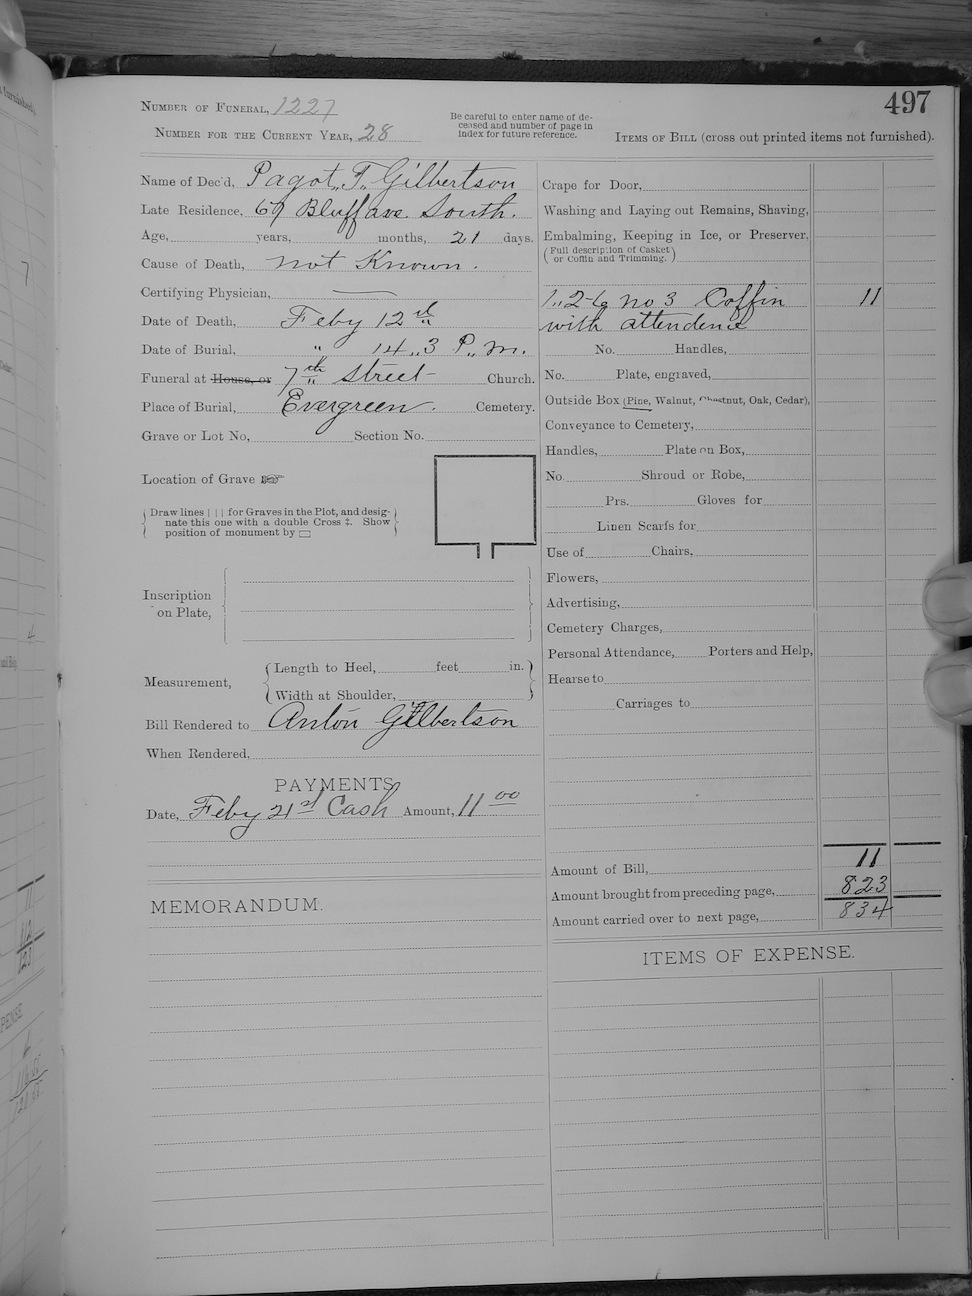 497
Number of Funeral, 1227
Number for the Current Year, 28
Be careful to enter name of de-
ceased and number of page in
index for future reference.
Items of Bill (cross out printed items not furnished).
Name of Dec'd, Pagot, T. Gilbertson
Late Residence, 69 Bluff ave South.
Age, years, months, 21 days.
Cause of Death, not Known.
Certifying Physician, —
Date of Death, Feby 12th
Date of Burial, " 14, 3 P. m.
Funeral at House, or 7th Street Church.
Place of Burial, Evergreen. Cemetery.
Grave or Lot No, Section No.
Location of Grave ☞
Draw lines | | | for Graves in the Plot, and desig-
nate this one with a double Cross ‡. Show
position of monument by ▭
Inscription
on Plate,
Measurement,
Length to Heel, feet in.
Width at Shoulder,
Bill Rendered to Anton Gilbertson
When Rendered,
PAYMENTS
Date, Feby 21st Cash Amount, 11 00
MEMORANDUM.
Crape for Door,
Washing and Laying out Remains, Shaving,
Embalming, Keeping in Ice, or Preserver,
(Full description of Casket
or Coffin and Trimming.)
1, 2-6 no 3 Coffin 11
with attendence
No. Handles,
No. Plate, engraved,
Outside Box (Pine, Walnut, Chestnut, Oak, Cedar),
Conveyance to Cemetery,
Handles, Plate on Box,
No. Shroud or Robe,
Prs. Gloves for
Linen Scarfs for
Use of Chairs,
Flowers,
Advertising,
Cemetery Charges,
Personal Attendance, Porters and Help,
Hearse to
Carriages to
Amount of Bill, 11
Amount brought from preceding page, 823
Amount carried over to next page, 834
ITEMS OF EXPENSE.